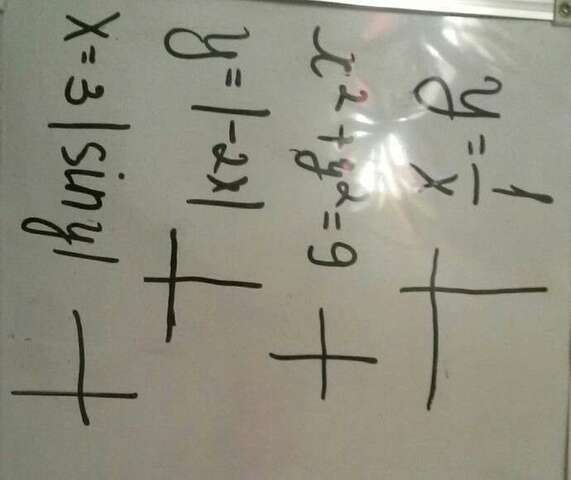 y = 1/x
x² + y² = 9
y = |-2x|
x = 3 |sin y|